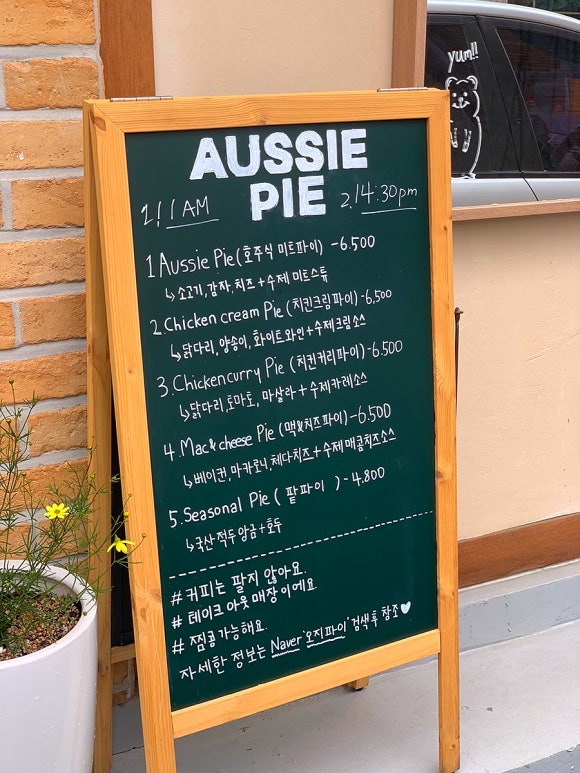 yum!!
AUSSIE
PIE
1. 11AM
2. 14:30pm
1. Aussie Pie (호주식 미트파이) - 6.500
↳ 소고기, 감자, 치즈 + 수제 미트스튜
2. Chicken cream Pie (치킨크림파이) - 6.500
↳ 닭다리, 양송이, 화이트와인 + 수제크림소스
3. Chicken curry Pie (치킨커리파이) - 6.500
↳ 닭다리, 토마토, 마살라 + 수제카레소스
4. Mac & cheese Pie (맥&치즈파이) - 6.500
↳ 베이컨, 마카로니, 체다치즈 + 수제 매콤치즈소스
5. Seasonal Pie ( 팥파이 ) - 4.800
↳ 국산 적두 앙금 + 호두
# 커피는 팔지 않아요.
# 테이크 아웃 매장이에요
# 찜콩 가능해요.
자세한 정보는 Naver '오지파이' 검색 후 참조♥